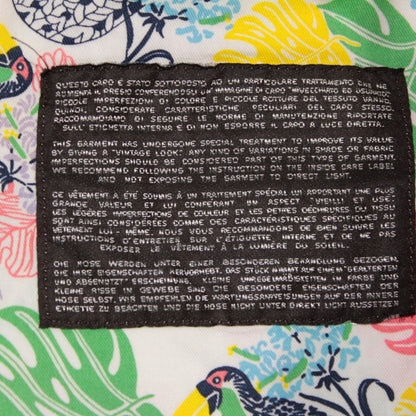 QUESTO CAPO È STATO SOTTOPOSTO AD UN PARTICOLARE TRATTAMENTO CHE NE
AUMENTA IL PREGIO CONFERENDOGLI UN'IMMAGINE DI CAPO "INVECCHIATO ED USURATO"
PICCOLE IMPERFEZIONI DI COLORE E PICCOLE ROTTURE DEL TESSUTO VANNO,
QUINDI, CONSIDERATE CARATTERISTICHE PECULIARI DEL CAPO STESSO
RACCOMANDIAMO DI SEGUIRE LE NORME DI MANUTENZIONE RIPORTATE
SULL'ETICHETTA INTERNA E DI NON ESPORRE IL CAPO A LUCE DIRETTA.
THIS GARMENT HAS UNDERGONE SPECIAL TREATMENT TO IMPROVE ITS VALUE
BY GIVING A "VINTAGE LOOK". ANY KIND OF VARIATIONS IN SHADE OR FABRIC
IMPERFECTIONS SHOULD BE CONSIDERED PART OF THIS TYPE OF GARMENT.
WE RECOMMEND FOLLOWING THE INSTRUCTION ON THE INSIDE CARE LABEL
AND NOT EXPOSING THE GARMENT TO DIRECT LIGHT.
CE VÊTEMENT A ÉTÉ SOUMIS À UN TRAITEMENT SPÉCIAL LUI APPORTANT UNE PLUS
GRANDE VALEUR ET LUI CONFÉRANT UN ASPECT "VIEILLI ET USÉ".
LES LÉGÈRES IMPERFECTIONS DE COULEUR ET LES PETITES DÉCHIRURES DU TISSU
SONT AINSI CONSIDÉRÉES COMME DES CARACTÉRISTIQUES SPÉCIFIQUES AU
VÊTEMENT LUI - MÊME. NOUS VOUS RECOMMANDONS DE BIEN SUIVRE LES
INSTRUCTIONS D'ENTRETIES SUR L'ÉTIQUETTE INTERNE ET DE NE PAS
EXPOSER LE VÊTEMENT À LA LUMIÈRE DU SOLEIL.
DIE HOSE WERDEN UNTER EINER BESONDEREN BEHANDLUNG GEZOGEN,
DIE IHRE EIGENSCHAFTEN HERVORHEBT. DAS STÜCK NIMMT AUF EINEM GEALTERTEN
UND ABGENÜTZT" ERSCHEINUNG. KLEINE UNREGELMÄßIGKEITEN IN FARBE UND
KLEINE RISSE IN GEWEBE SIND DIE BESONDERE EIGENSCHAFTEN DER
HOSE SELBST. WIR EMPFEHLEN DIE WARTUNGSANWEISUNGEN AUF DER INNERE
ETIKETTE ZU BEACHTEN UND DIE HOSE NICHT UNTER DIREKT LICHT AUSSETZEN